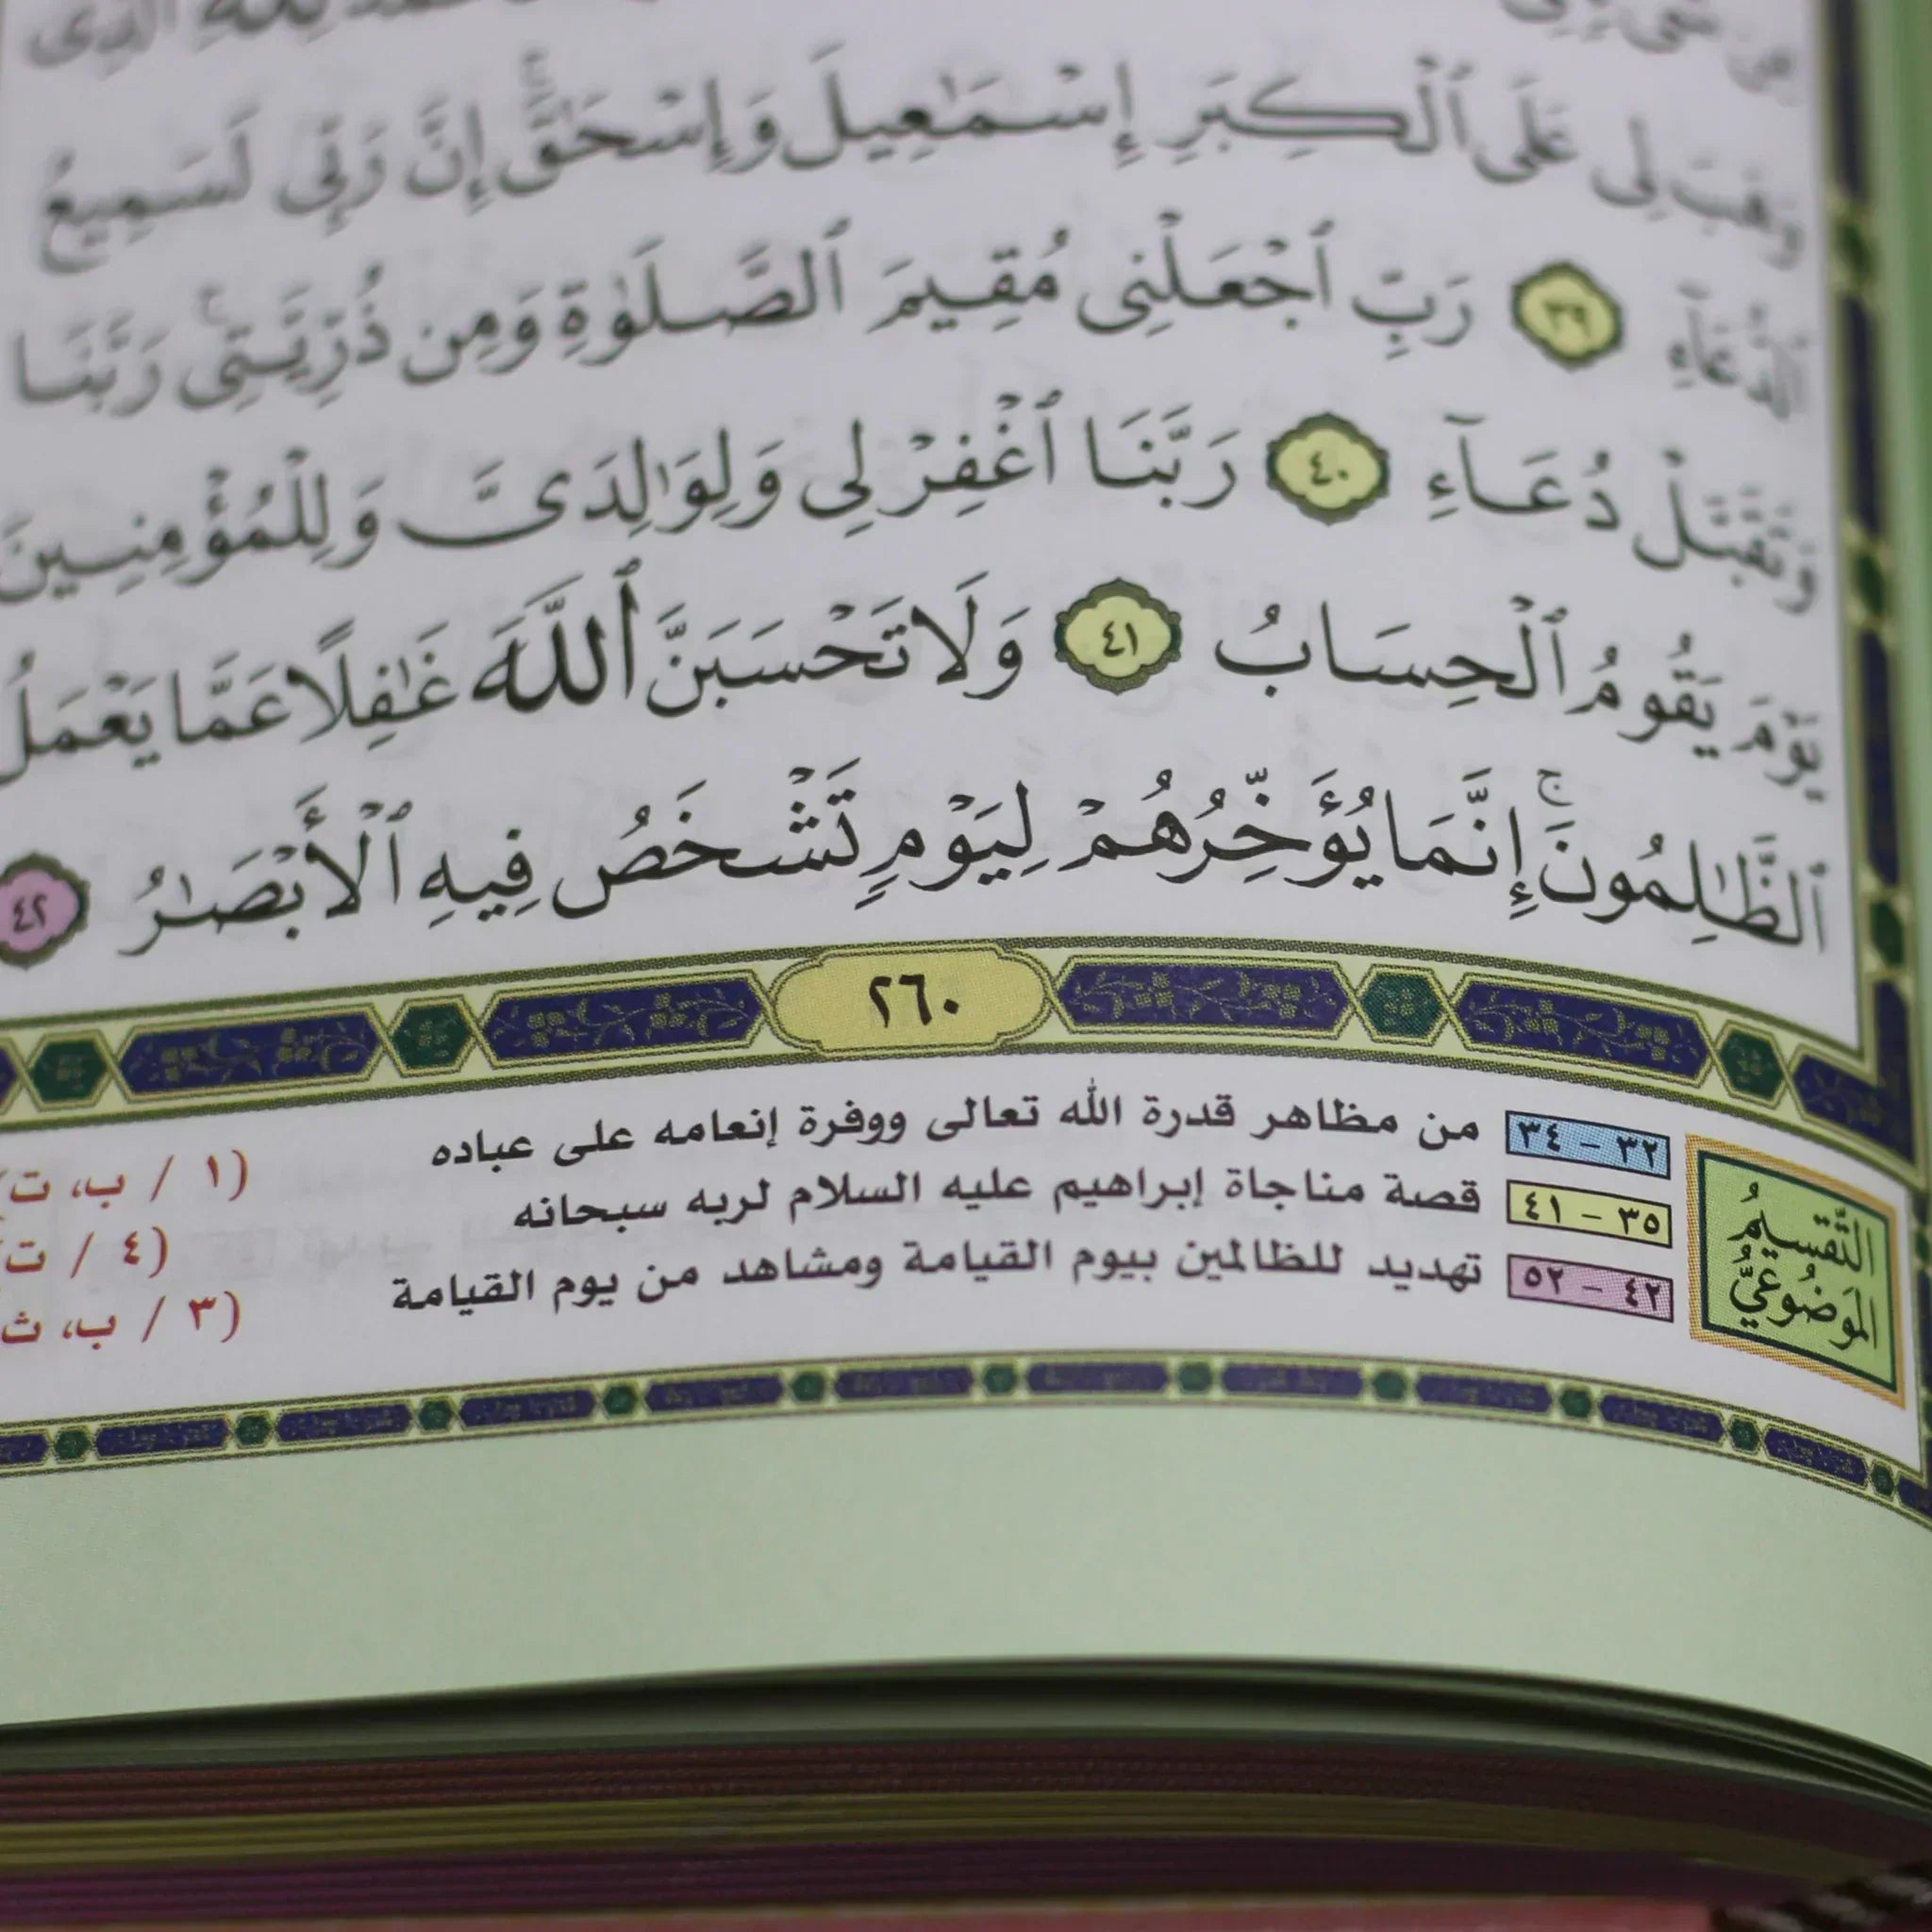 لِلَّهِ ٱلَّذِى
وَهَبَ لِى عَلَى ٱلْكِبَرِ إِسْمَٰعِيلَ وَإِسْحَٰقَ ۚ إِنَّ رَبِّى لَسَمِيعُ
ٱلدُّعَآءِ ٣٩ رَبِّ ٱجْعَلْنِى مُقِيمَ ٱلصَّلَوٰةِ وَمِن ذُرِّيَّتِى ۚ رَبَّنَا
وَتَقَبَّلْ دُعَآءِ ٤٠ رَبَّنَا ٱغْفِرْ لِى وَلِوَٰلِدَىَّ وَلِلْمُؤْمِنِينَ
يَوْمَ يَقُومُ ٱلْحِسَابُ ٤١ وَلَا تَحْسَبَنَّ ٱللَّهَ غَٰفِلًا عَمَّا يَعْمَلُ
ٱلظَّٰلِمُونَ ۚ إِنَّمَا يُؤَخِّرُهُمْ لِيَوْمٍ تَشْخَصُ فِيهِ ٱلْأَبْصَٰرُ ٤٢
٢٦٠
التَّقسيمُ
المَوضُوعيُّ
٣٢ - ٣٤ من مظاهر قدرة الله تعالى ووفرة إنعامه على عباده (١ / ب، ت)
٣٥ - ٤١ قصة مناجاة إبراهيم عليه السلام لربه سبحانه (٤ / ت
٤٢ - ٥٢ تهديد للظالمين بيوم القيامة ومشاهد من يوم القيامة (٣ / ب، ث